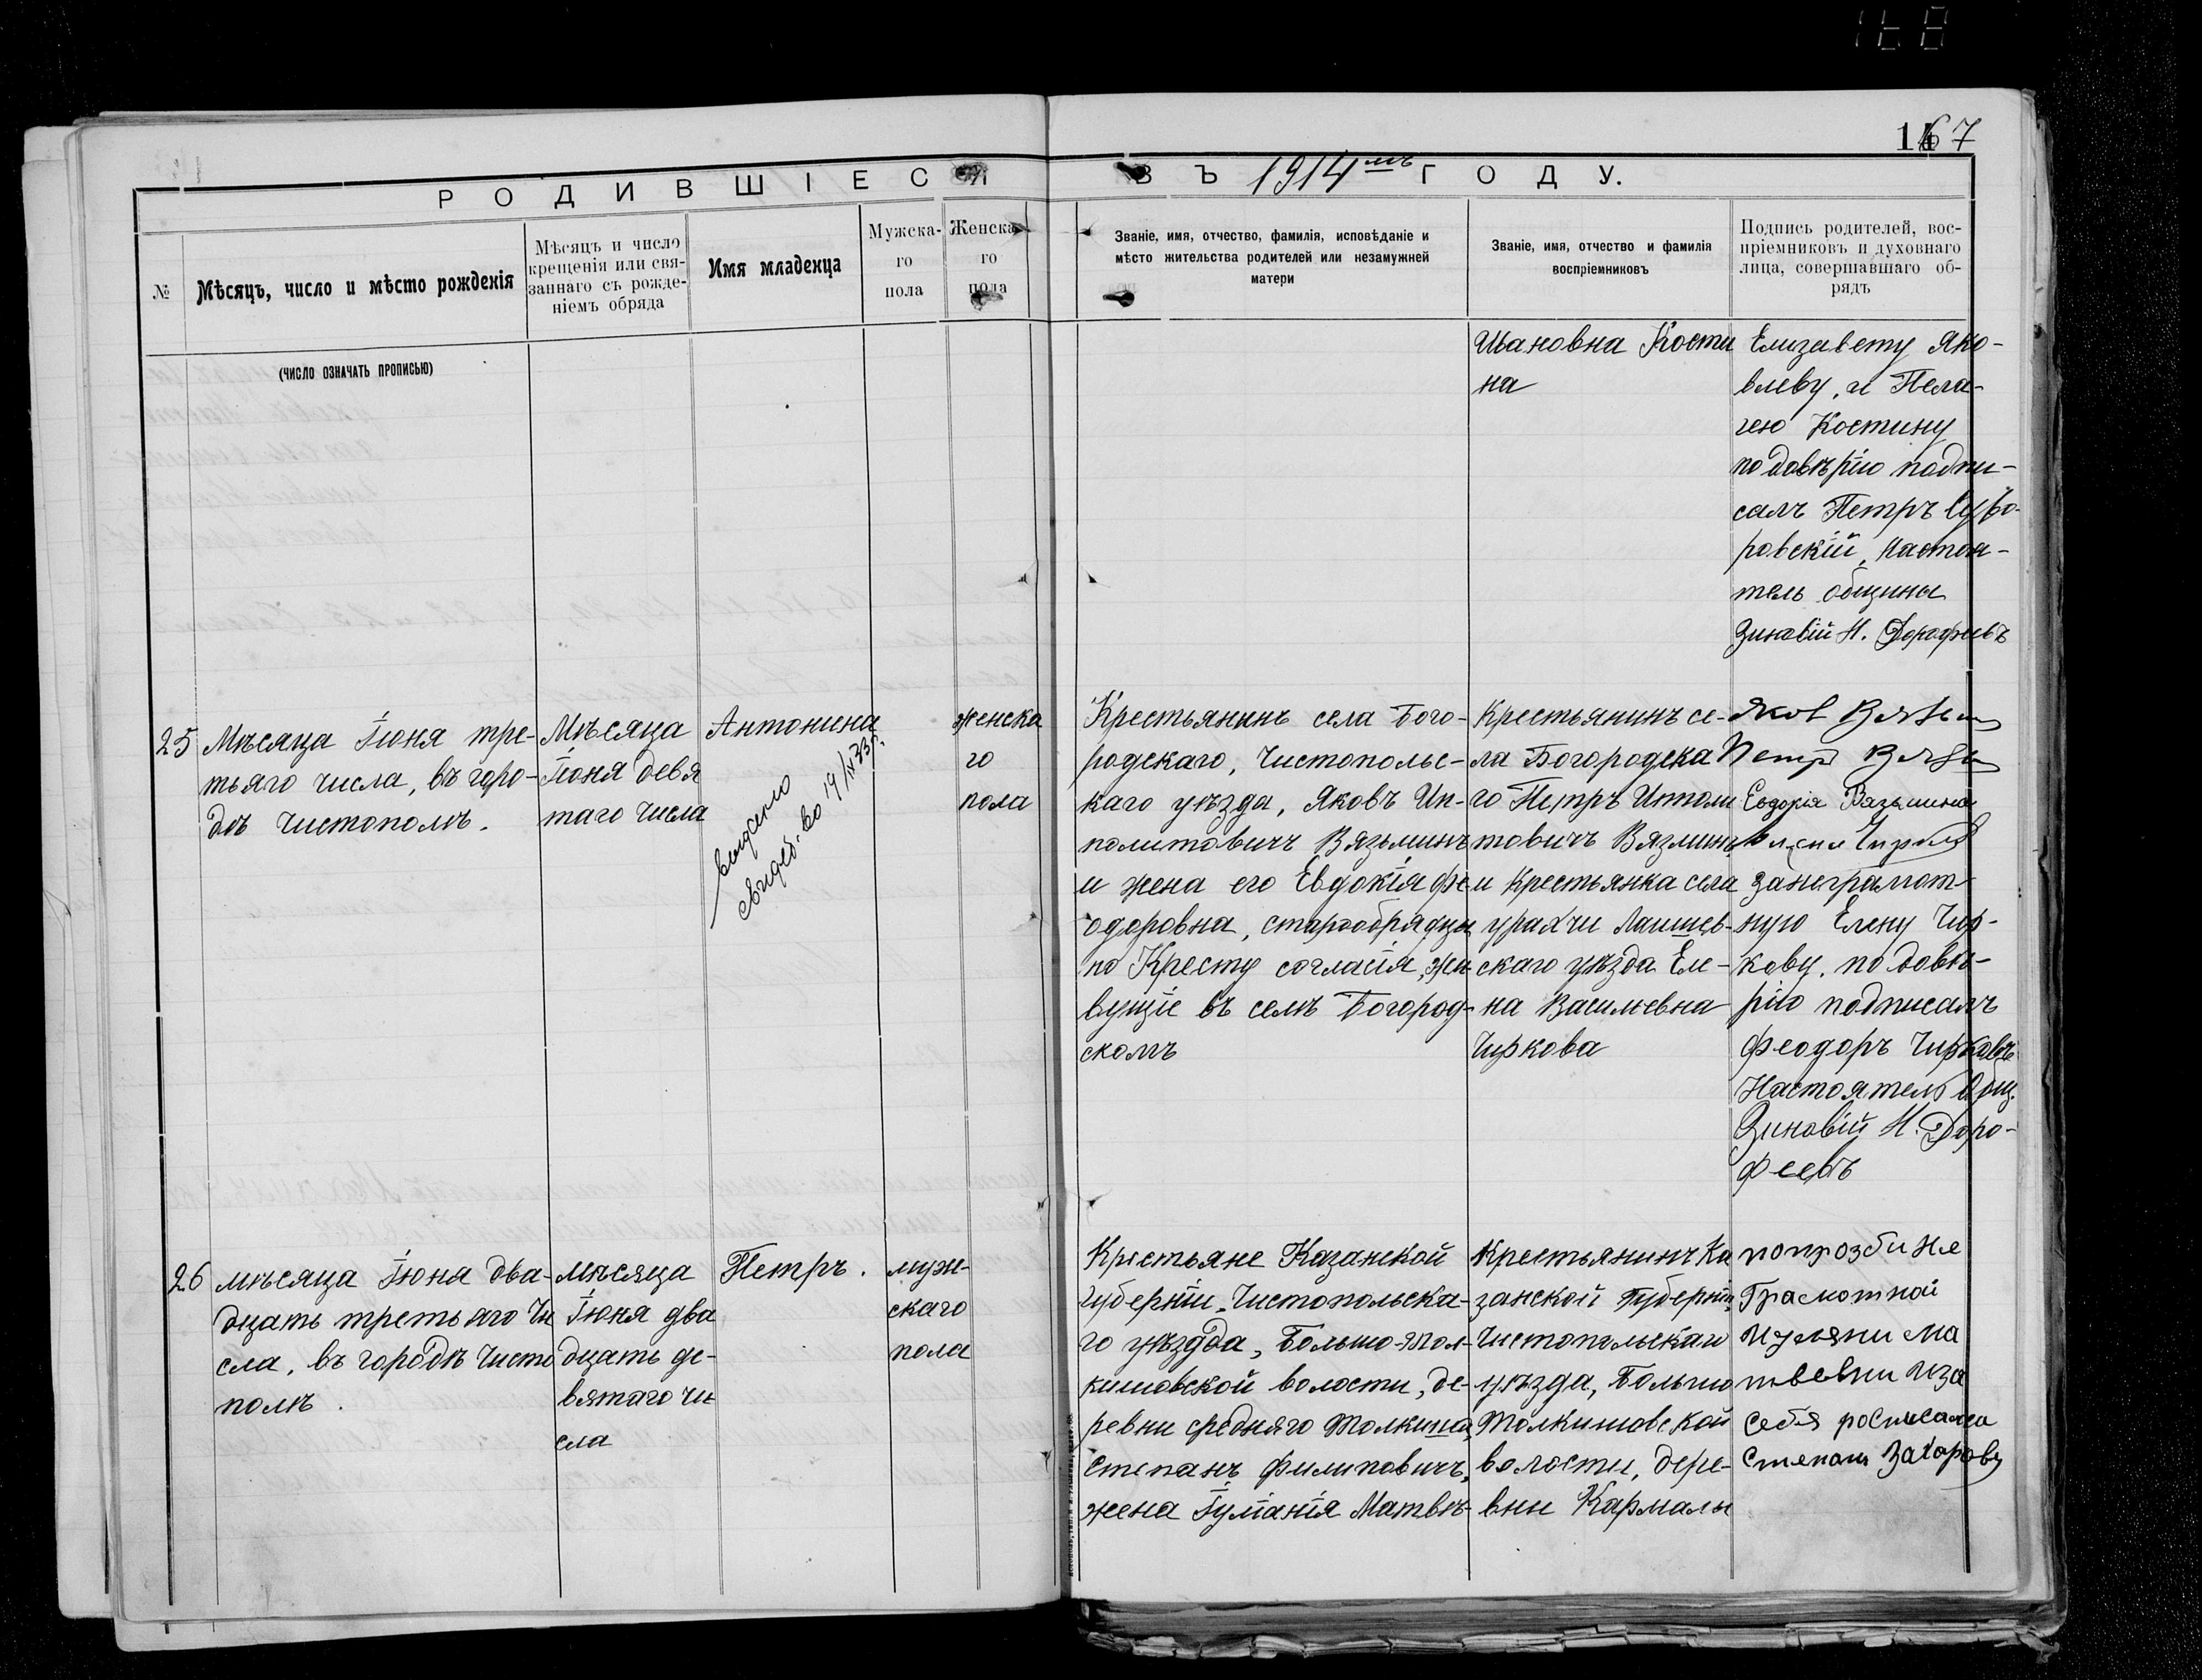 168
1467
РОДИВШІЕСЯ
ВЪ 1914мъ ГОДУ.
№
Мѣсяцъ, число и мѣсто рожденія
(число означать прописью)
Мѣсяцъ и число
крещенія или свя-
заннаго съ рожде-
ніемъ обряда
Имя младенца
Мужска-
го
пола
Женска
го
пола
Званіе, имя, отчество, фамилія, исповѣданіе и
мѣсто жительства родителей или незамужней
матери
Званіе, имя, отчество и фамилія
воспріемниковъ
Подпись родителей, вос-
пріемниковъ и духовнаго
лица, совершавшаго об-
рядъ
Ивановна Кости
на
Елизавету Яко-
влеву, и Пела-
гею Костину
по довѣрію подпи-
салъ Петръ Суво-
ровскій, Настоя-
тель общины
Зиновій Н. Дорофеевъ
25
Мѣсяца Іюня тре-
тьяго числа, въ горо-
дѣ Чистополѣ.
Мѣсяца
Іюня девя
таго числа
Антонина
выдано
свидет-во 19/IX 33г.
женска
го
пола
Крестьянинъ села Бого-
родскаго, Чистопольс-
каго уѣзда, Яковъ Ип-
политовичъ Вязьминъ
и жена его Евдокія Фе
одоровна, старообрядцы
по Кресту согласія, жи
вущіе въ селѣ Богород-
скомъ
Крестьянинъ се-
ла Богородска
го Петръ Иппол
товичъ Вязминъ
и Крестьянка села
урахчи Лаишев-
скаго уѣзда Еле-
на Васильевна
Чиркова
Яков Вязьмин
Петр Вязьмин
Евдокія Вязьмина
за неграмот-
ную Елену Чир-
кову, по довѣ-
рію подписалъ
Феодоръ Чирковъ
Настоятель Общ.
Зиновій Н. Доро-
феевъ
26
мѣсяца Іюня два-
дцать третьяго Чи
сла, въ городѣ Чисто
полѣ.
мѣсяца
Іюня два
дцать де-
вятаго чи
сла
Петръ.
муж-
скаго
пола
Крестьяне Казанской
губерніи, Чистопольска-
го уѣздда, Больше-Тол-
кишовской волости, де-
ревни средняго Толкиша,
Степанъ Филиповичъ,
жена Іуліанія Матвѣ-
Крестьянинъ Ка
занской Губерніи,
Чистопольскаго
уѣзда, Больше
Толкишовской
волости, дере-
вни Кармалы
попрозби не
Грамотной
Иуляни Ма
твевни Иза
себя росписалса
Степанъ Захоровъ